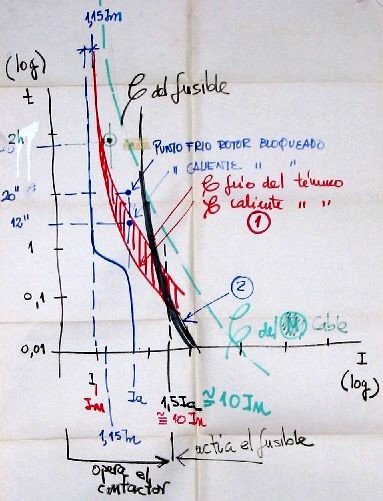 1,15Im
(log)
t
ℰ del fusible
2h
PUNTO FRIO ROTOR BLOQUEADO
" CALIENTE " "
20"
ℰ frío del térmico
ℰ caliente " "
12"
1
1
0,1
2
ℰ del M cable
0,01
I
(log)
Im
Ia
1,5Ia ≅10In
≅10In
1,15Im
opera el
contactor
actúa el fusible